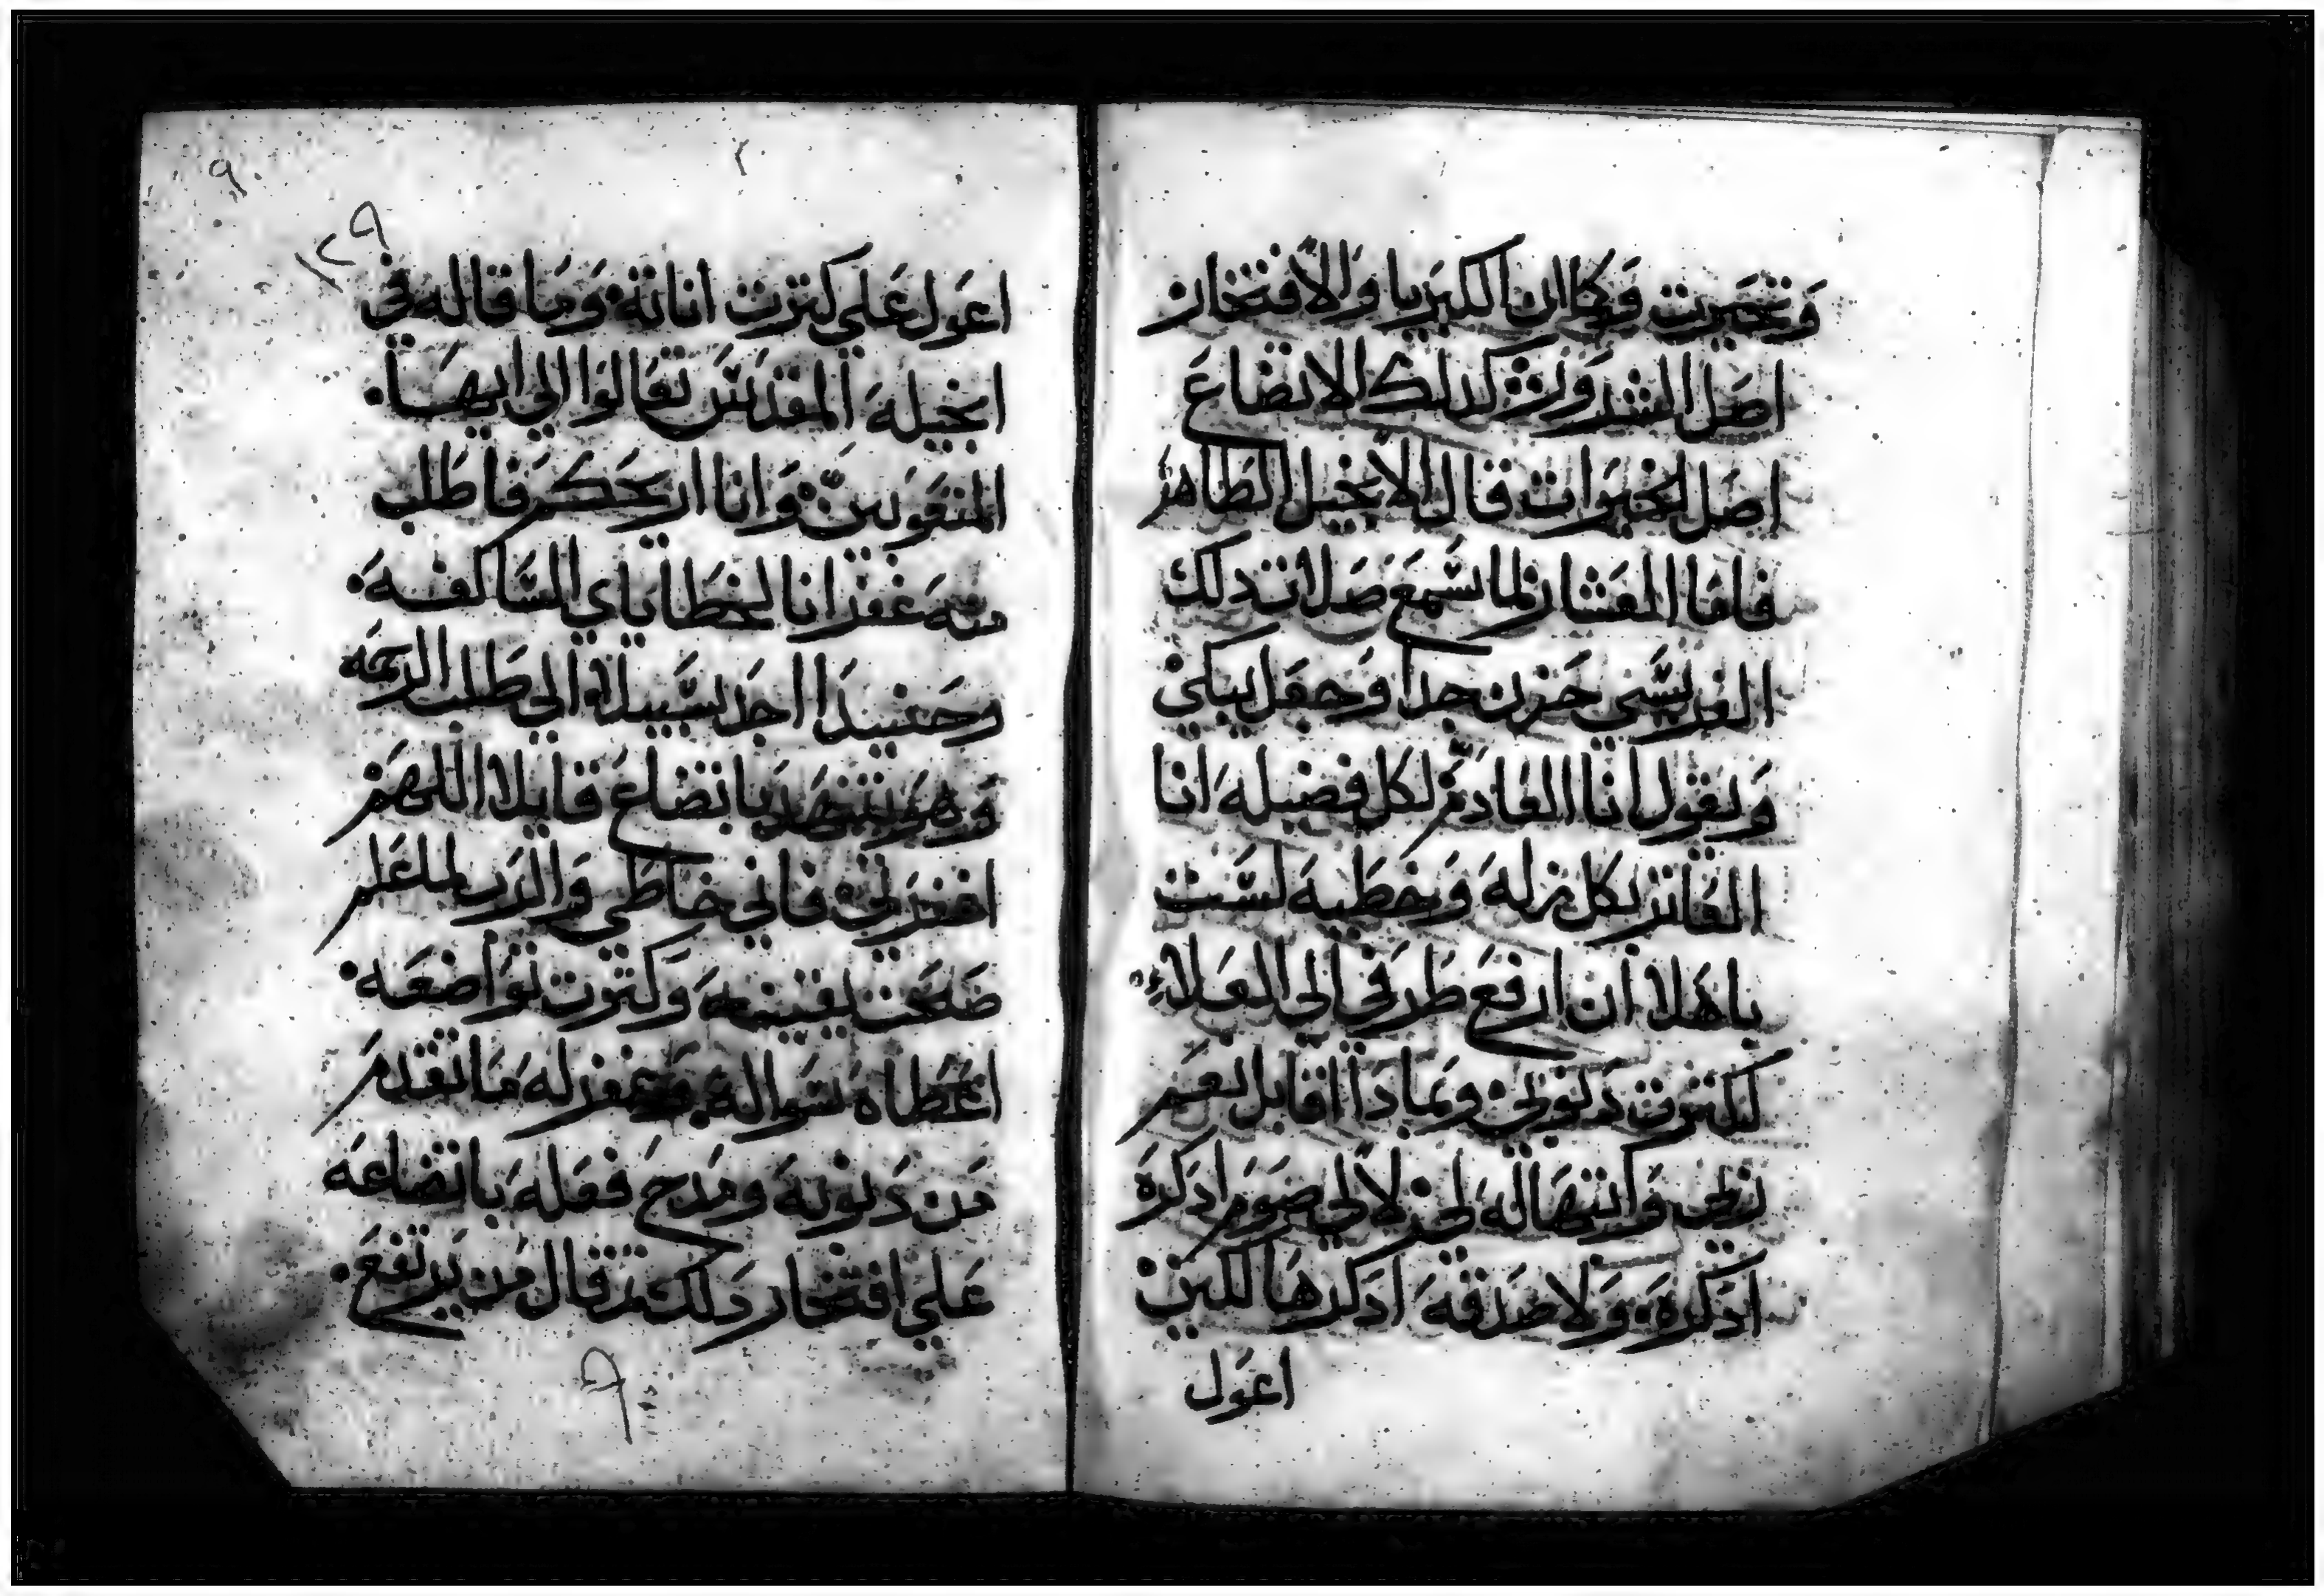 وتجبرت فكان الكبريا والافتخار
اصل الشرور كدلك الاتضاع
اصل الخيرات قال الانجيل الطاهر
فاما العشار لما سمع صلات دلك
الفريسى حزن جدا وجعل يبكي
ويقول انا العادم لكل فضيله انا
الفاتر بكل زله وخطيه لست
باهلا ان ارفع طرفي الي العلاء
لكثرت دنوبي وبمادا اقابل نعم
ربي وانتهاله لا لي صوم ادكره
ادكره ولا صدقه ادكرها لكين
اعول
١٢٩
اعول علي كثرت اناته وما قاله في
انجيله المقدس تعالوا الي ايها
المتعوبين وانا اريحكم فاطلب
منه غفرانا لخطاياي السالفه
وحينيدا اجد سبيلا الي طلب الرحمه
وهو يتنهد باتضاع قايلا اللهم
اغفرلي فاني خاطي والرب لما علم
صحت يقينه وكثرت تواضعه
اعطاه سواله وغفر له ما تقدم
من دنوبه ومدح فعله باتضاعه
علي افتخار دلك ثم قال من يرتفع